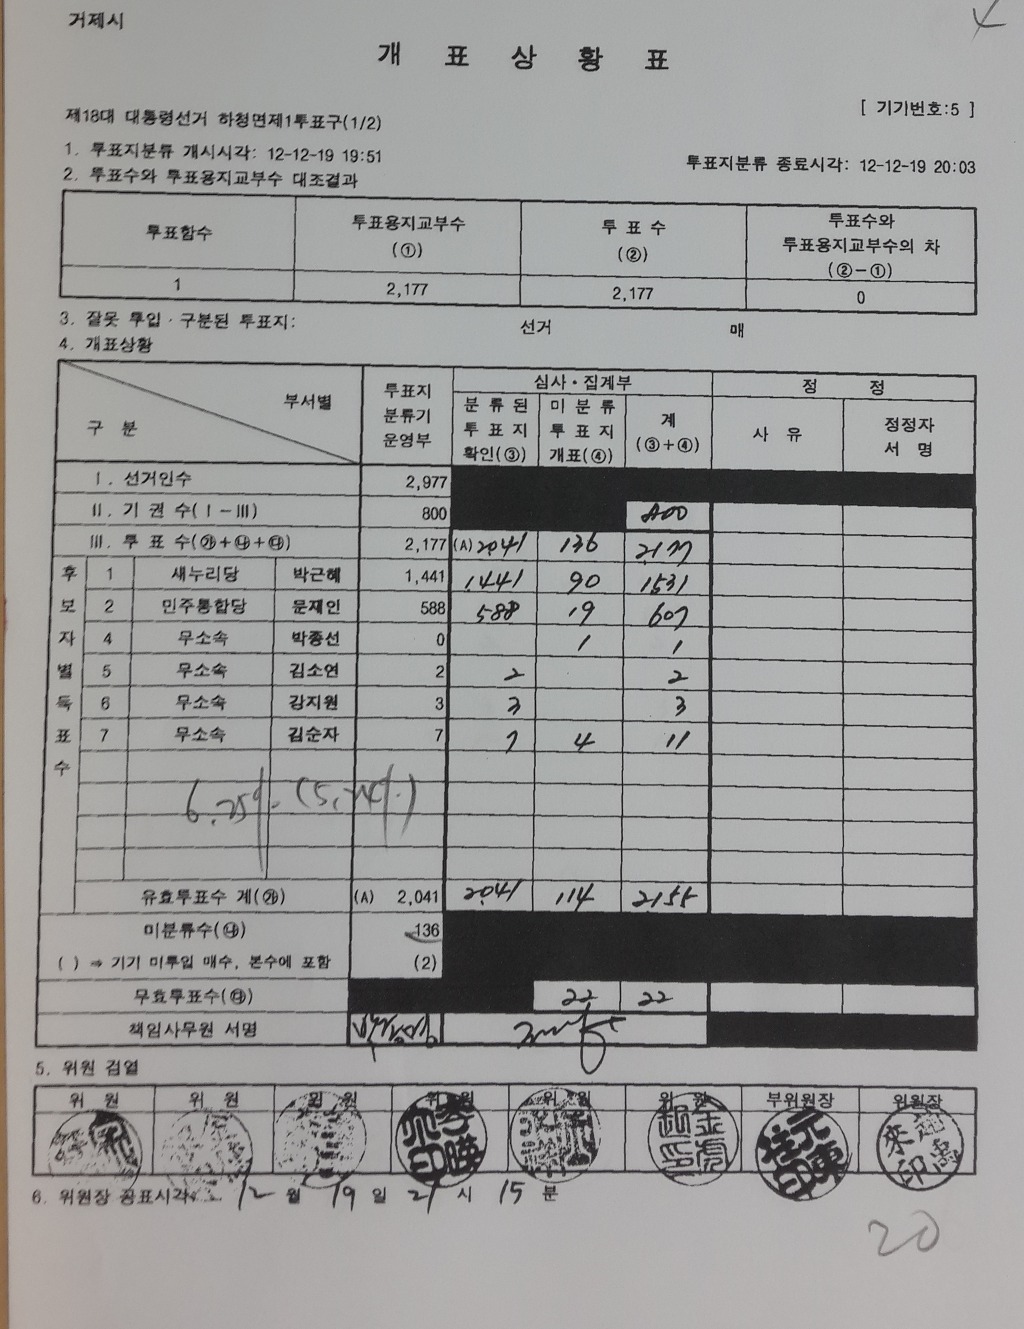 거제시
개 표 상 황 표
[ 기기번호:5 ]
제18대 대통령선거 하청면제1투표구(1/2)
1. 투표지분류 개시시각: 12-12-19 19:51
투표지분류 종료시각: 12-12-19 20:03
2. 투표수와 투표용지교부수 대조결과
투표함수 투표용지교부수 (①) 투 표 수 (②) 투표수와 투표용지교부수의 차 (②-①)
1 2,177 2,177 0
3. 잘못 투입·구분된 투표지: 선거 매
4. 개표상황
부서별 구 분 투표지 분류기 운영부 심사·집계부 정 정
분 류 된 투 표 지 확인(③) 미 분 류 투 표 지 개표(④) 계 (③+④) 사 유 정정자 서 명
Ⅰ. 선거인수 2,977
Ⅱ. 기 권 수(Ⅰ-Ⅲ) 800 800
Ⅲ. 투 표 수(㉮+㉯+㉰) 2,177 (A) 2041 136 2177
후보자별득표수
1 새누리당 박근혜 1,441 1441 90 1531
2 민주통합당 문재인 588 588 19 607
4 무소속 박종선 0 1 1
5 무소속 김소연 2 2 2
6 무소속 강지원 3 3 3
7 무소속 김순자 7 7 4 11
유효투표수 계(㉮) (A) 2,041 2041 114 2155
미분류수(㉯) 136
( ) ⇒ 기기 미투입 매수, 본수에 포함 (2)
무효투표수(㉰) 22 22
책임사무원 서명
5. 위원 검열
위 원 위 원 위 원 위 원 위 원 위 원 부위원장 위원장
6. 위원장 공표시각: 12 월 19 일 21 시 15 분
20